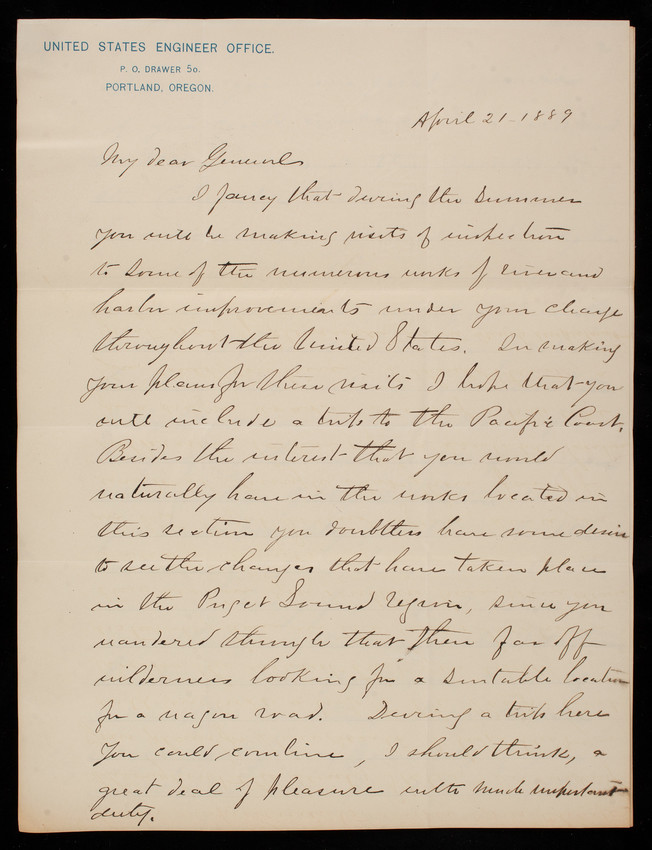 UNITED STATES ENGINEER OFFICE.
P. O. DRAWER 50.
PORTLAND, OREGON.
April 21 - 1889
My dear General
I fancy that during the summer
you will be making visits of inspection
to some of the numerous works of river and
harbor improvements under your charge
throughout the United States. In making
your plans for these visits I hope that you
will include a trip to the Pacific Coast.
Besides the interest that you would
naturally have in the works located in
this section you doubtless have some desire
to see the changes that have taken place
in the Puget Sound region, since you
wandered through that then far off
wilderness looking for a suitable location
for a wagon road. During a trip here
you could combine, I should think, a
great deal of pleasure with much important
duty.